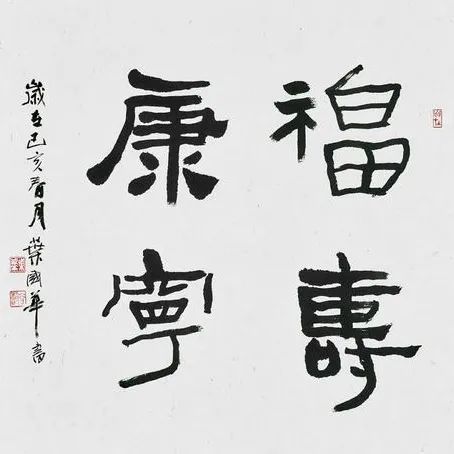 福壽
康寧
歲在己亥春月葉國華書